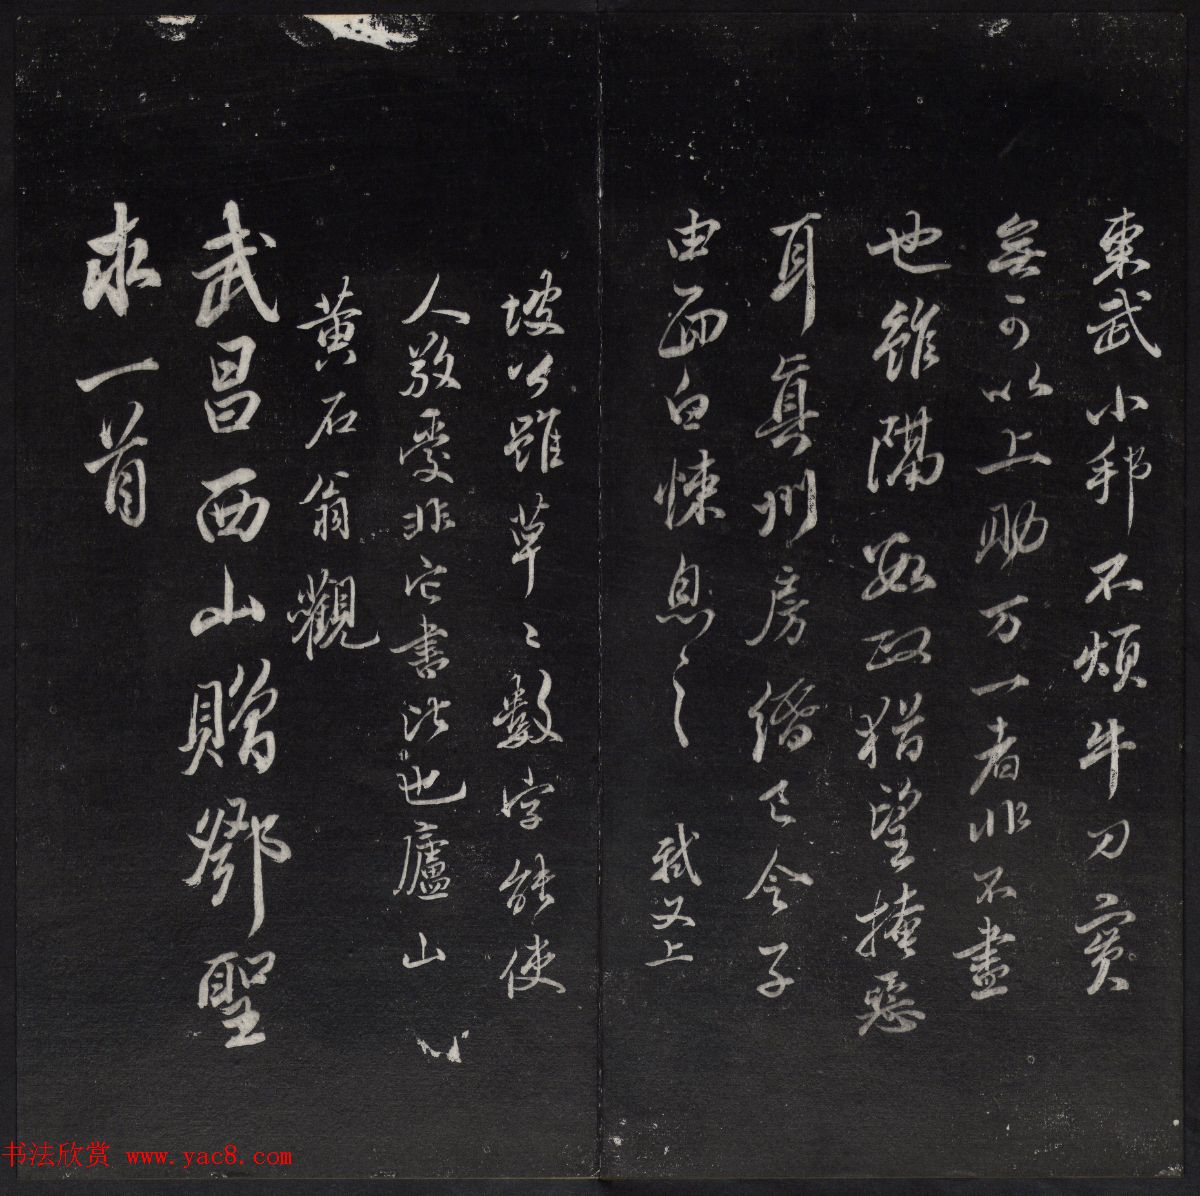 東武小邦不煩牛刀實
無可以上助万一者非不盡
也雖隔數政猶望掩惡
耳真州房緡已令子
由面白悚息〻 軾又上
坡公雖草〻數字能使
人敬愛非它書比也廬山
黃石翁觀
武昌西山贈鄧聖
求一首
书法欣赏 www.yac8.com